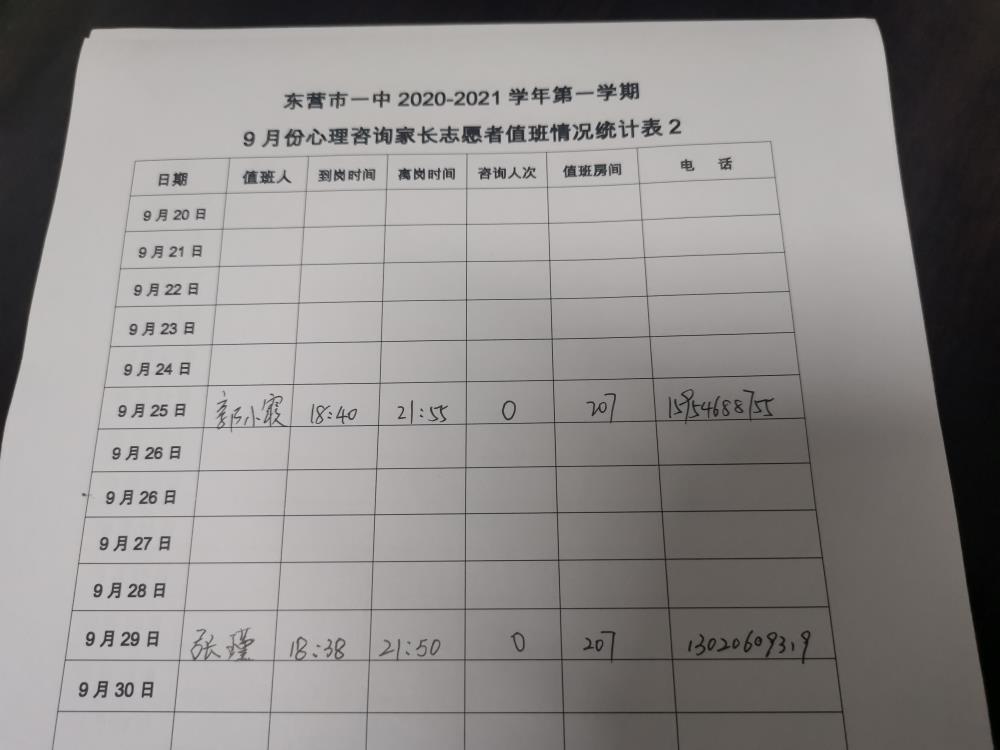 东营市一中 2020-2021 学年第一学期
9 月份心理咨询家长志愿者值班情况统计表 2
日期 值班人 到岗时间 离岗时间 咨询人次 值班房间 电 话
9 月 20 日
9 月 21 日
9 月 22 日
9 月 23 日
9 月 24 日
9 月 25 日 郭小霞 18:40 21:55 0 207 15954688755
9 月 26 日
9 月 26 日
9 月 27 日
9 月 28 日
9 月 29 日 张瑾 18:38 21:50 0 207 13020609319
9 月 30 日